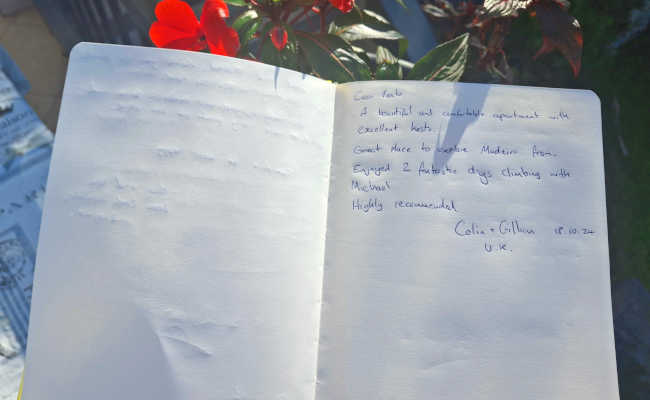 A beautiful and comfortable apartment with
excellent hosts.
Great place to explore Madeira from.
Enjoyed 2 fantastic days climbing with
Michael
Highly recommended
Colin + Gillian 18.10.24
U.K.